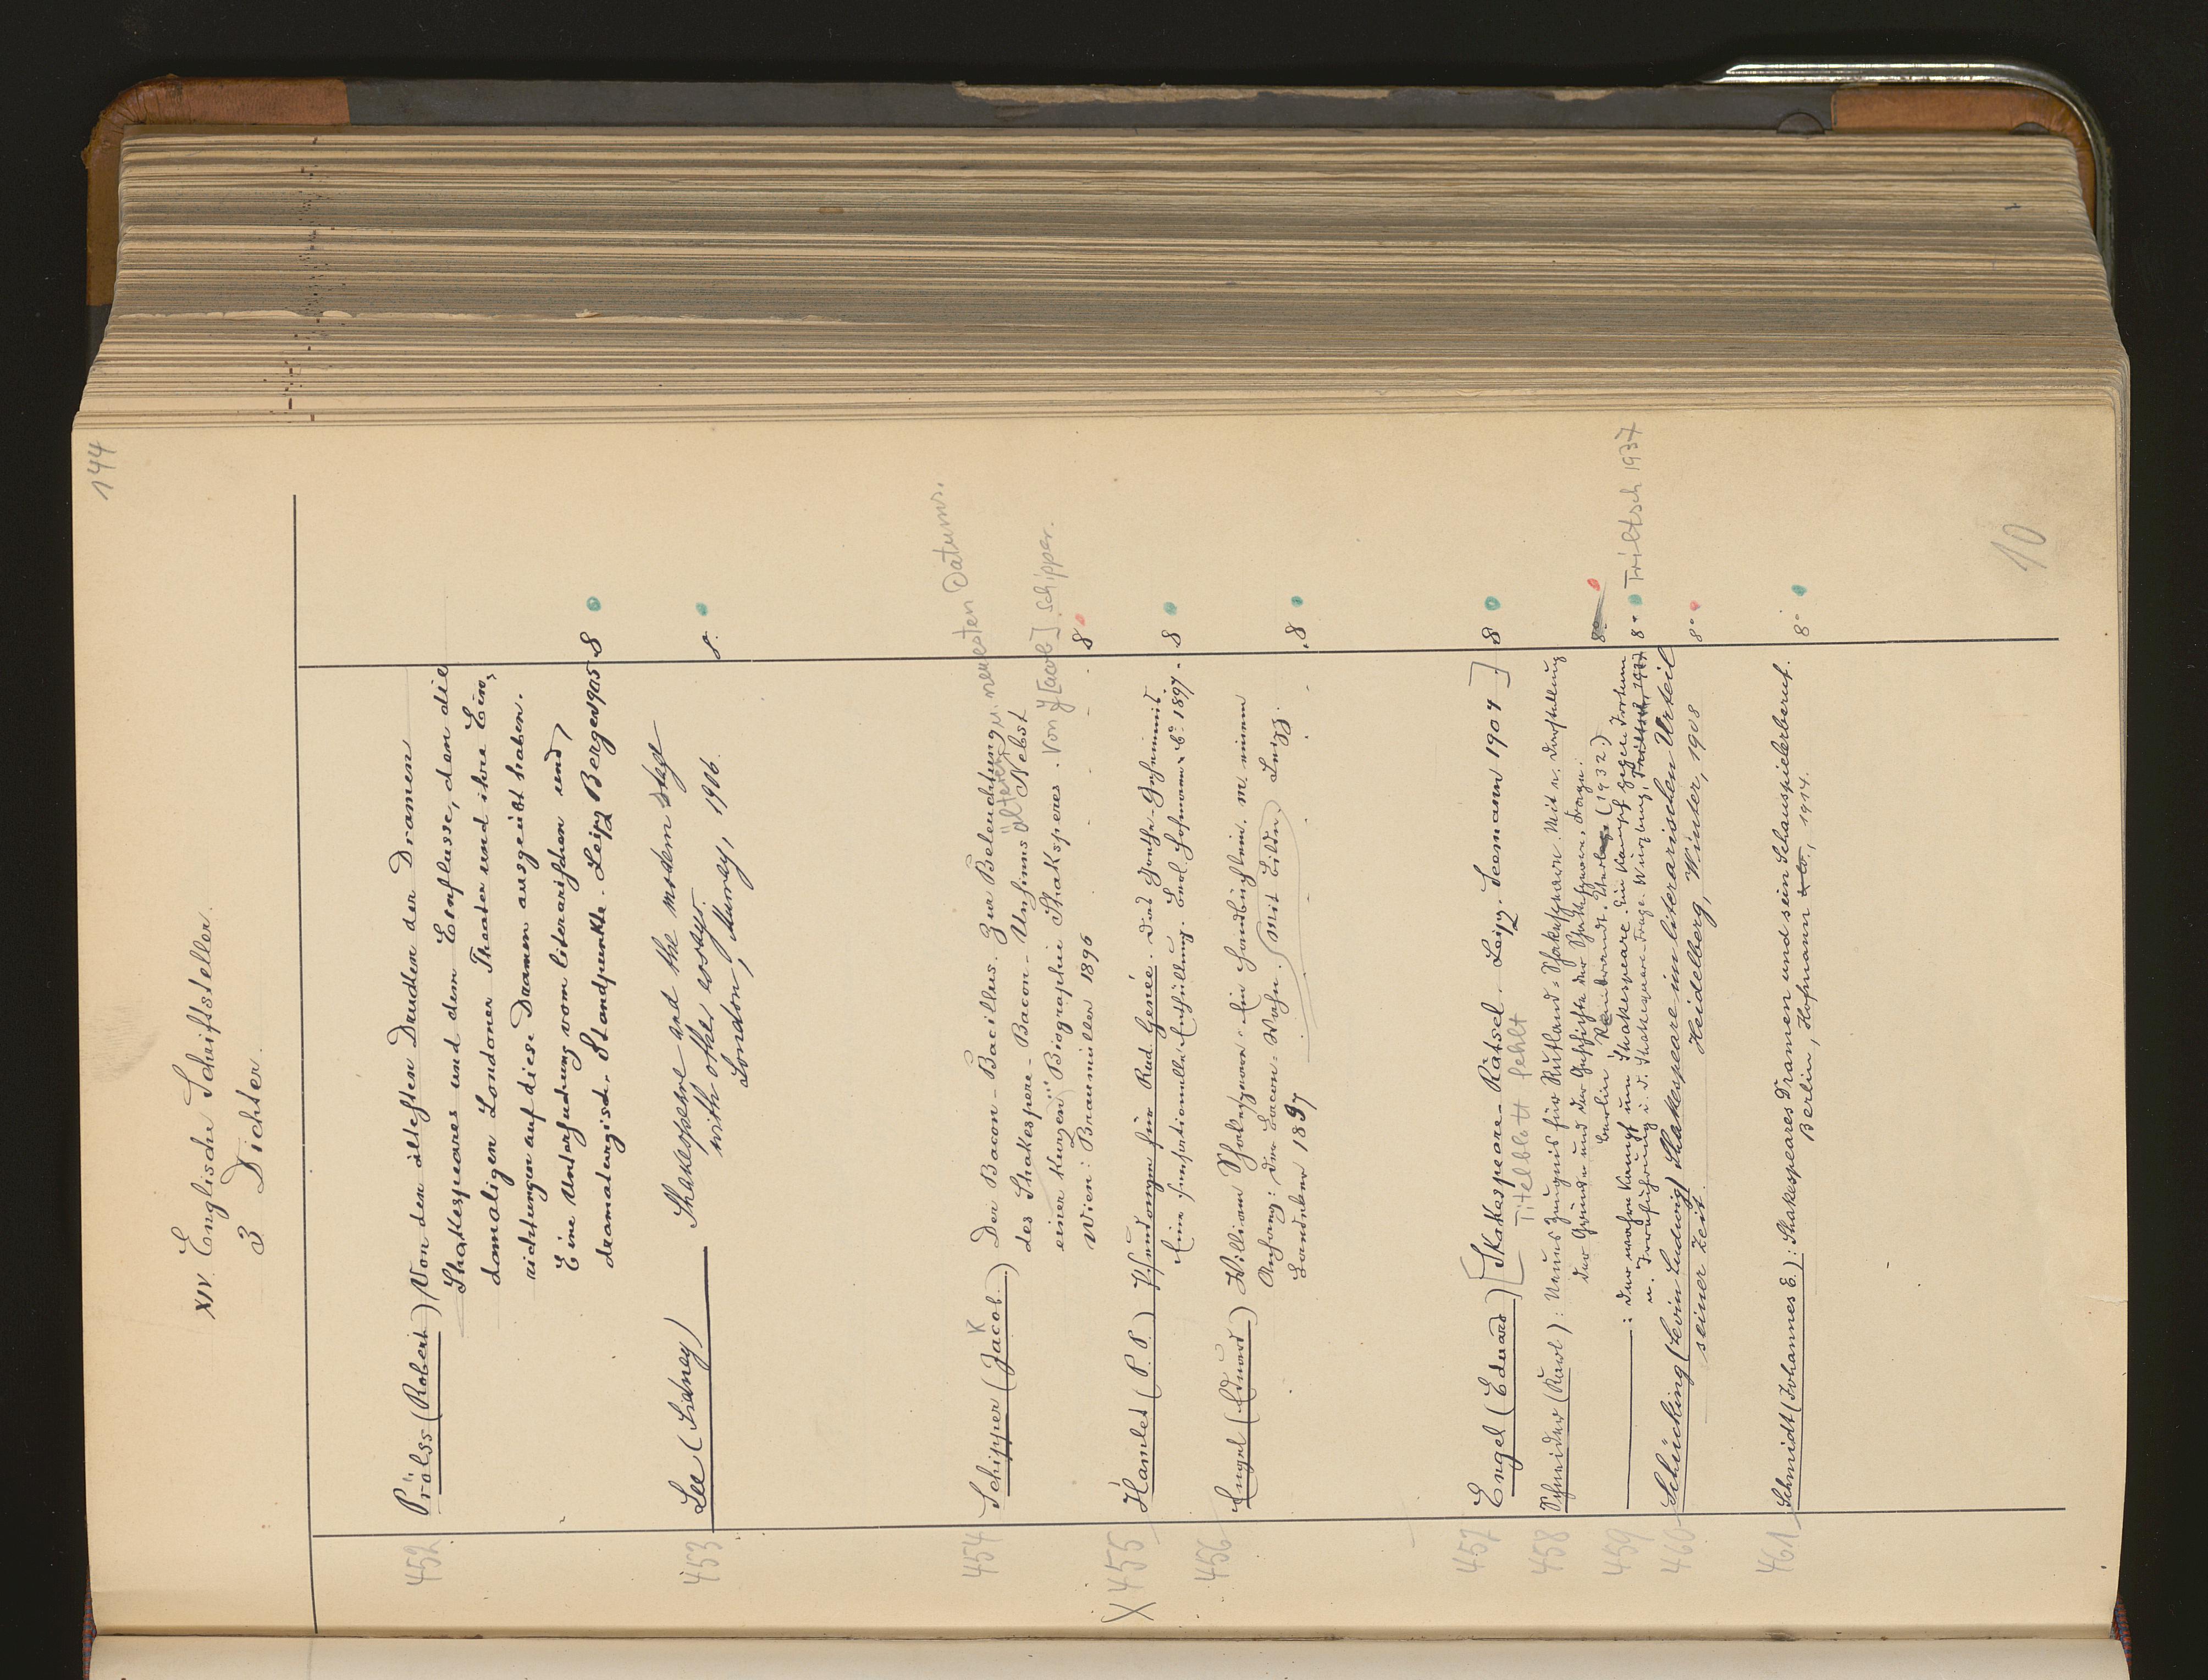 144
XIV. Englische Schriftsteller.
3 Dichter.
452 Prölss (Robert) Von den ältesten Drucken der Dramen
Shakespeares und dem Einflusse, den die
damaligen Londoner Theater und ihre Ein-
richtungen auf diese Dramen ausgeübt haben.
Eine Untersuchung vom literarischen und
dramaturgisch. Standpunkte. Leipz Berger 1905 8
453 Lee (Sidney) Shakespeare and the modern stage
with other essays.
London, Murray, 1906. 8.
454 Schipper (Jacob) Der Bacon-Bacillus. Zur Beleuchtung
k
älteren u. neuesten Datums.
des Shakspere-Bacon-Unsinns Nebst
einer kurzen Biographie Shaksperes. Von J[acob] Schipper.
Wien: Braumüller 1896 8
X 455 Hamlet (P. P.) Pseudonym für Rud. Genée. Das Goethe-Geheimnis.
Eine sensationelle Enthüllung. Berl. Hofmann & Co 1897. 8
456 Engel (Eduard) William Shakespeare. Ein Handbüchlein. m. einem
Anhang: Der Bacon-Wahn. (Mit Bildn.) Leipz.
Baedeker 1897 8
457 Engel (Eduard) [Shakespeare-Rätsel. Leipz. Seemann 1904] 8
Titelblatt fehlt
458 Schneider (Karl): Neues Zeugnis für Rutland-Shakespeare. Mit e. Darstellung
der Gründe und der Geschichte der Shakespeare-Frage.
Berlin (1932.) 8°
459 —: Der wahre Kampf um Shakespeare. Ein Kampf gegen Irrtum
u. Irreführung i. d. Shakespeare-Frage. Würzburg, Triltsch, 1937 8° Triltsch 1937
460 Schücking (Levin Ludwig) Shakespeare im literarischen Urteil
seiner Zeit. Heidelberg, Winter, 1908 8°
461 Schmidt (Johannes E.): Shakespeares Dramen und sein Schauspielerberuf.
Berlin, Hofmann & Co., 1914. 8°
10